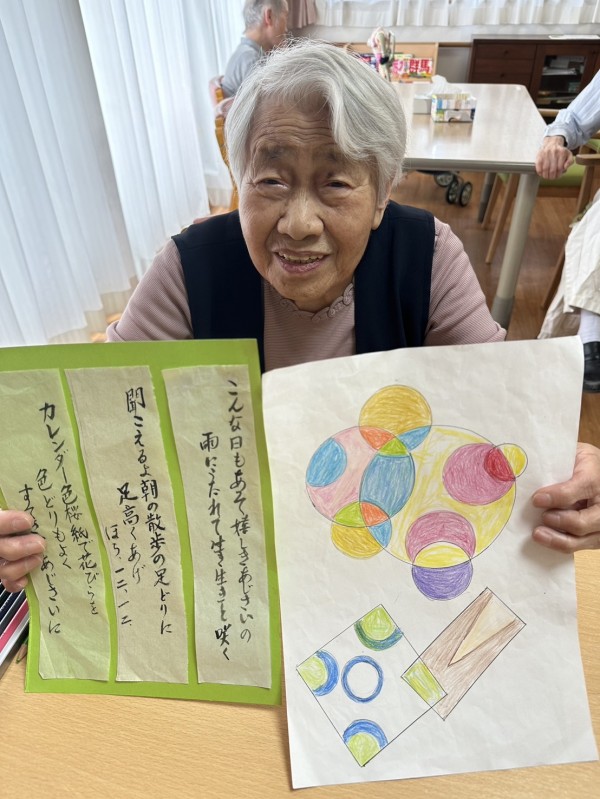 こんな日もあそ様しきあじさいの
雨にうたれて生き生きと咲く
聞こえるよ朝の散歩の足どりに
足高くあげ
ほら、一二、一二、
カレンダー色桜紙で花びらを
色どりもよく
あじさいに
群馬